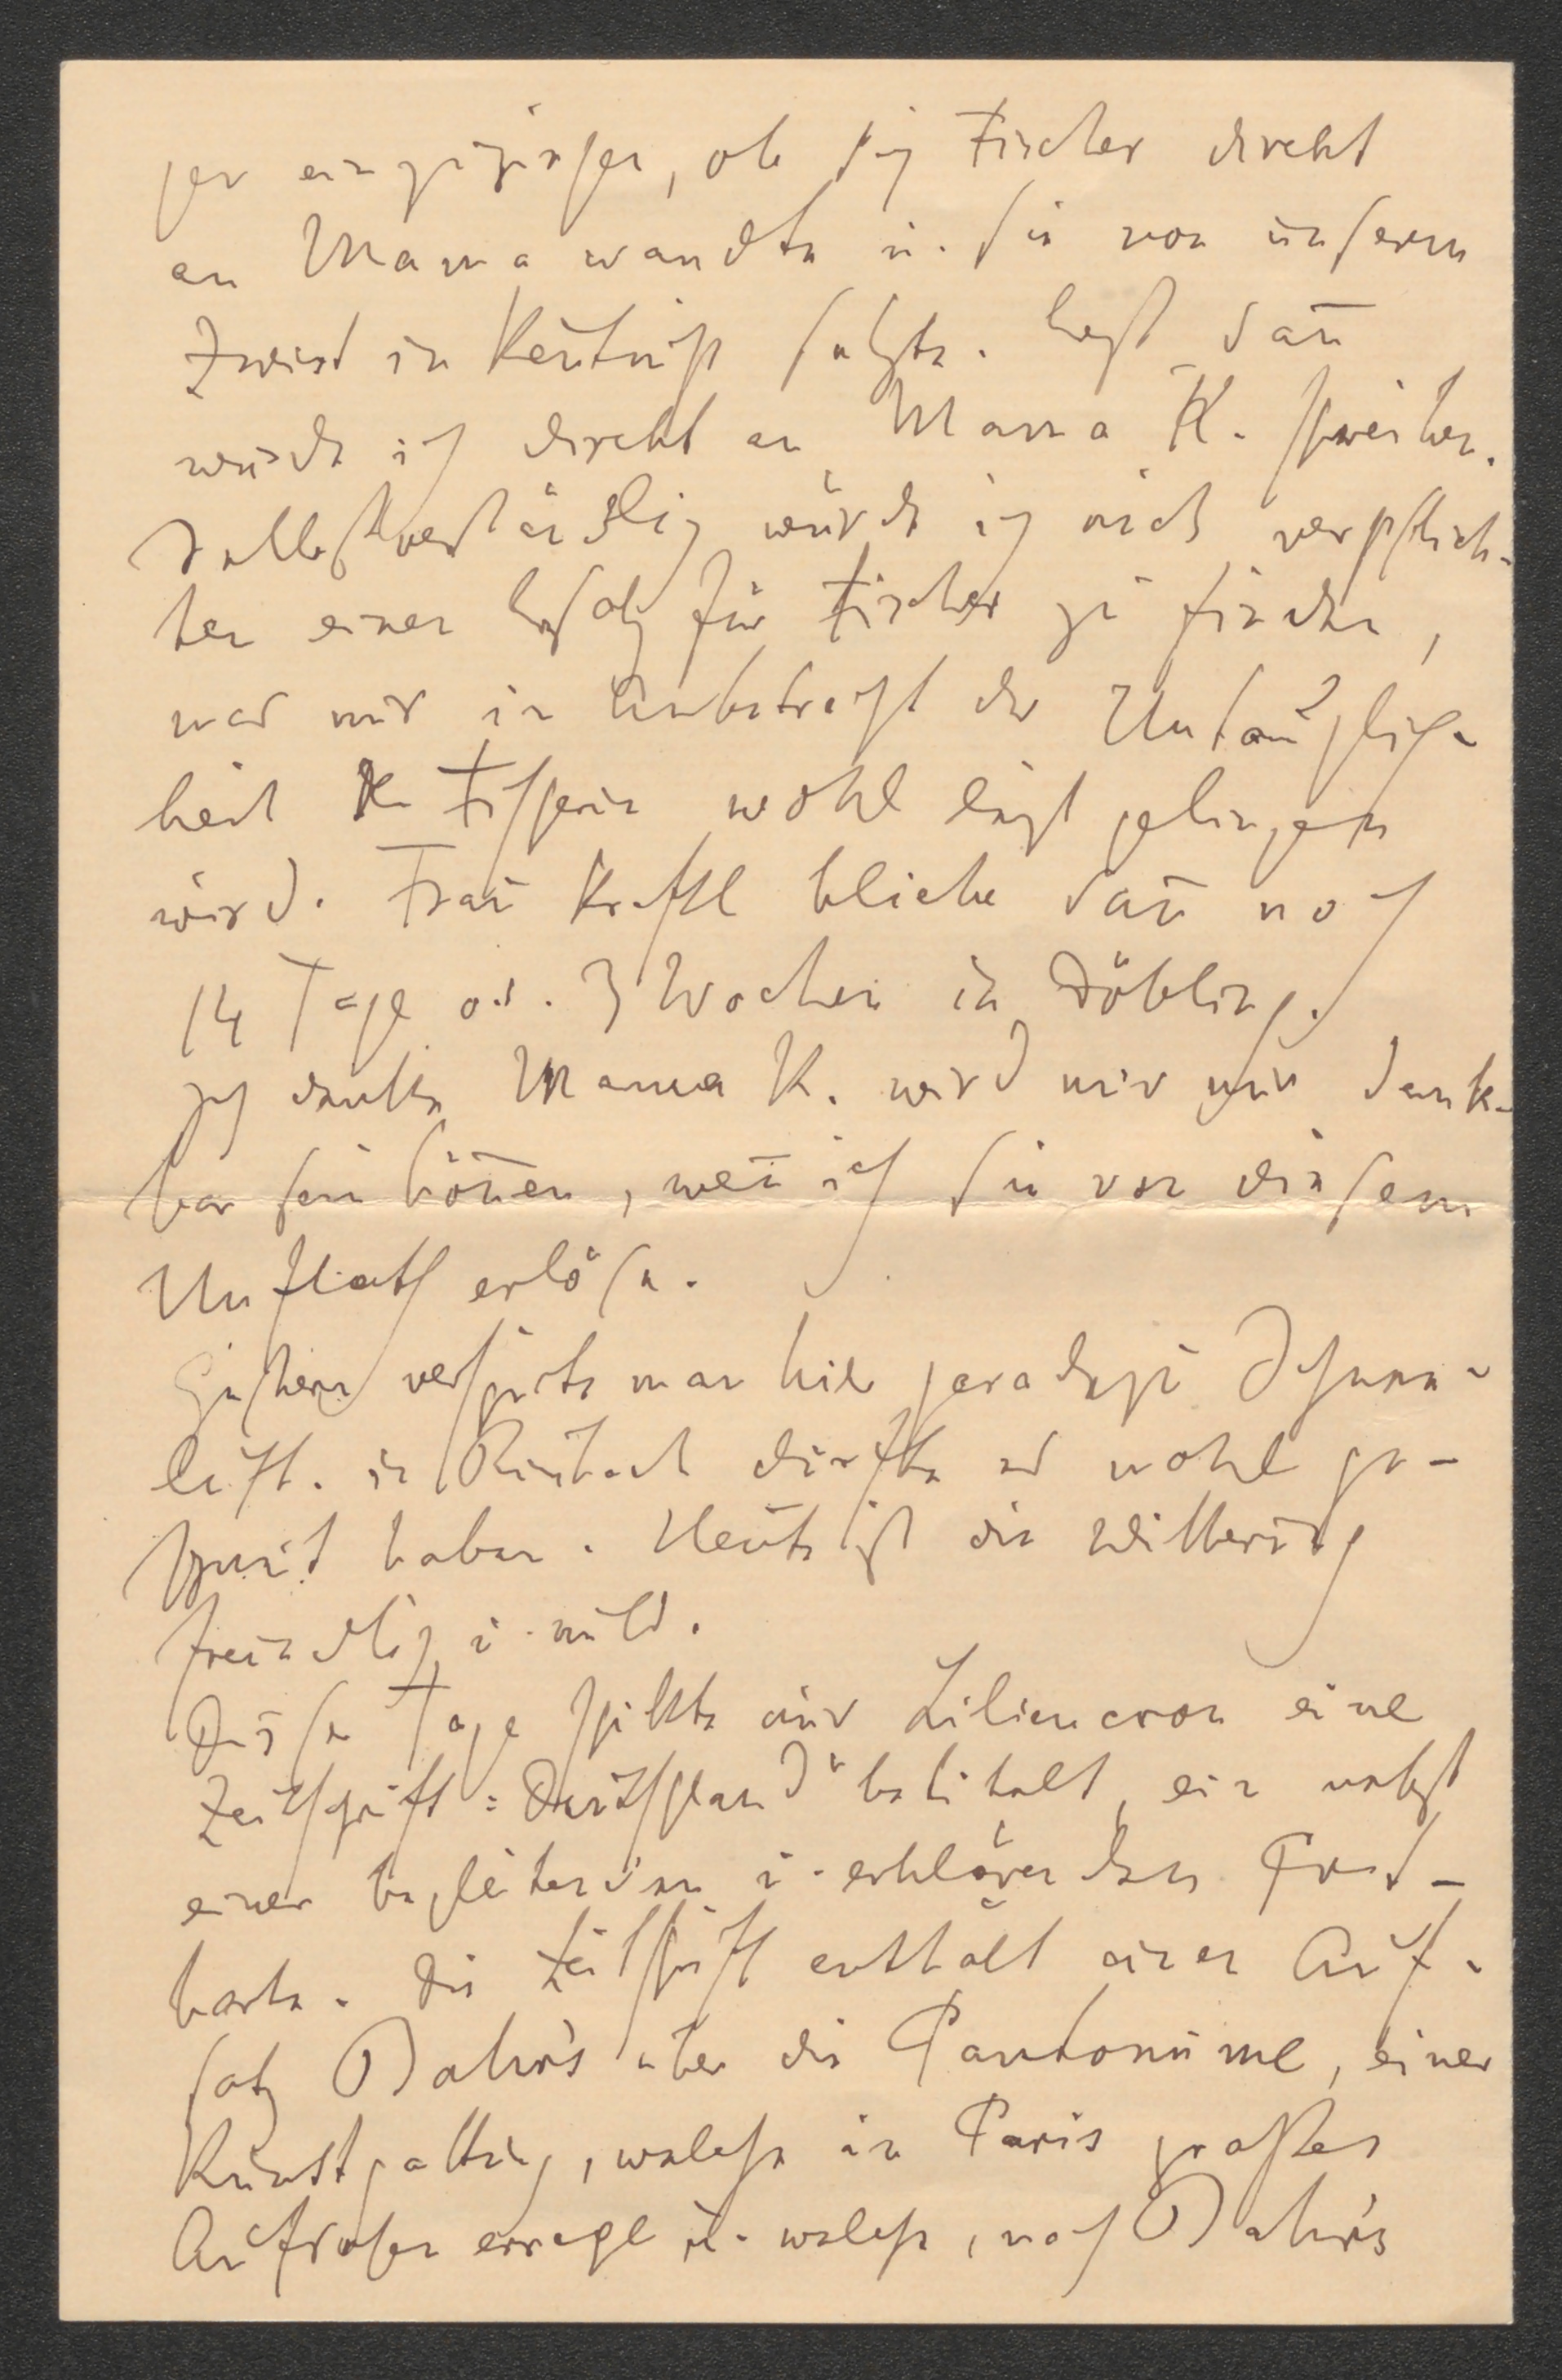 gen einzugehen, ob sich Fischer direkt
an Mama wandte u. sie von unserm
Zwist in Keñtniß setzte. Erst dañ
würde ich direkt an Mama K. schreiben.
Selbstverständlich würde ich mich verpflich-
ten einen Ersatz für Fischer zu finden,
was mir in Anbetracht der Untauglich-
keit der Fischerin wohl leicht gelingen
wird. Frau Kraftl bliebe dañ noch
14 Tage od. 3 Wochen in Döbling.
Ich denke Mama K. wird mir nur dank-
bar sein köñen, weñ ich sie von diesem
Unflath erlöse.
Gestern verspürte man hier geradezu Schnee-
luft. in dürfte es wohl ge-
schneit haben. Heute ist die Witterung
freundlich u. mild.
Dieser Tage schickte mir Liliencron eine
Zeitschrift: Deutschland" betitelt, ein nebst
einer begleitenden u. erklärenden Post-
karte. Die Zeitschrift enthält einen Auf-
satz Bahr's über die Pantomime, einer
Kunstgattung, welche in Paris großes
Aufsehen errege u. welche, nach Bahr's